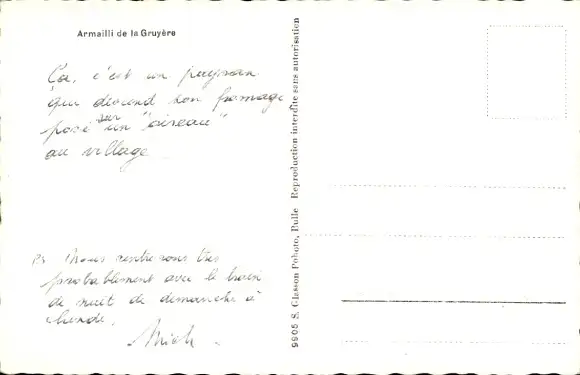 Armailli de la Gruyère
Ça, c'est un paysan
qui descend son fromage
posé sur un "oiseau"
au village
PS Nous rentrerons très
probablement avec le train
de nuit de dimanche à
Mich
9905 S. Glasson Photo, Bulle Reproduction interdite sans autorisation